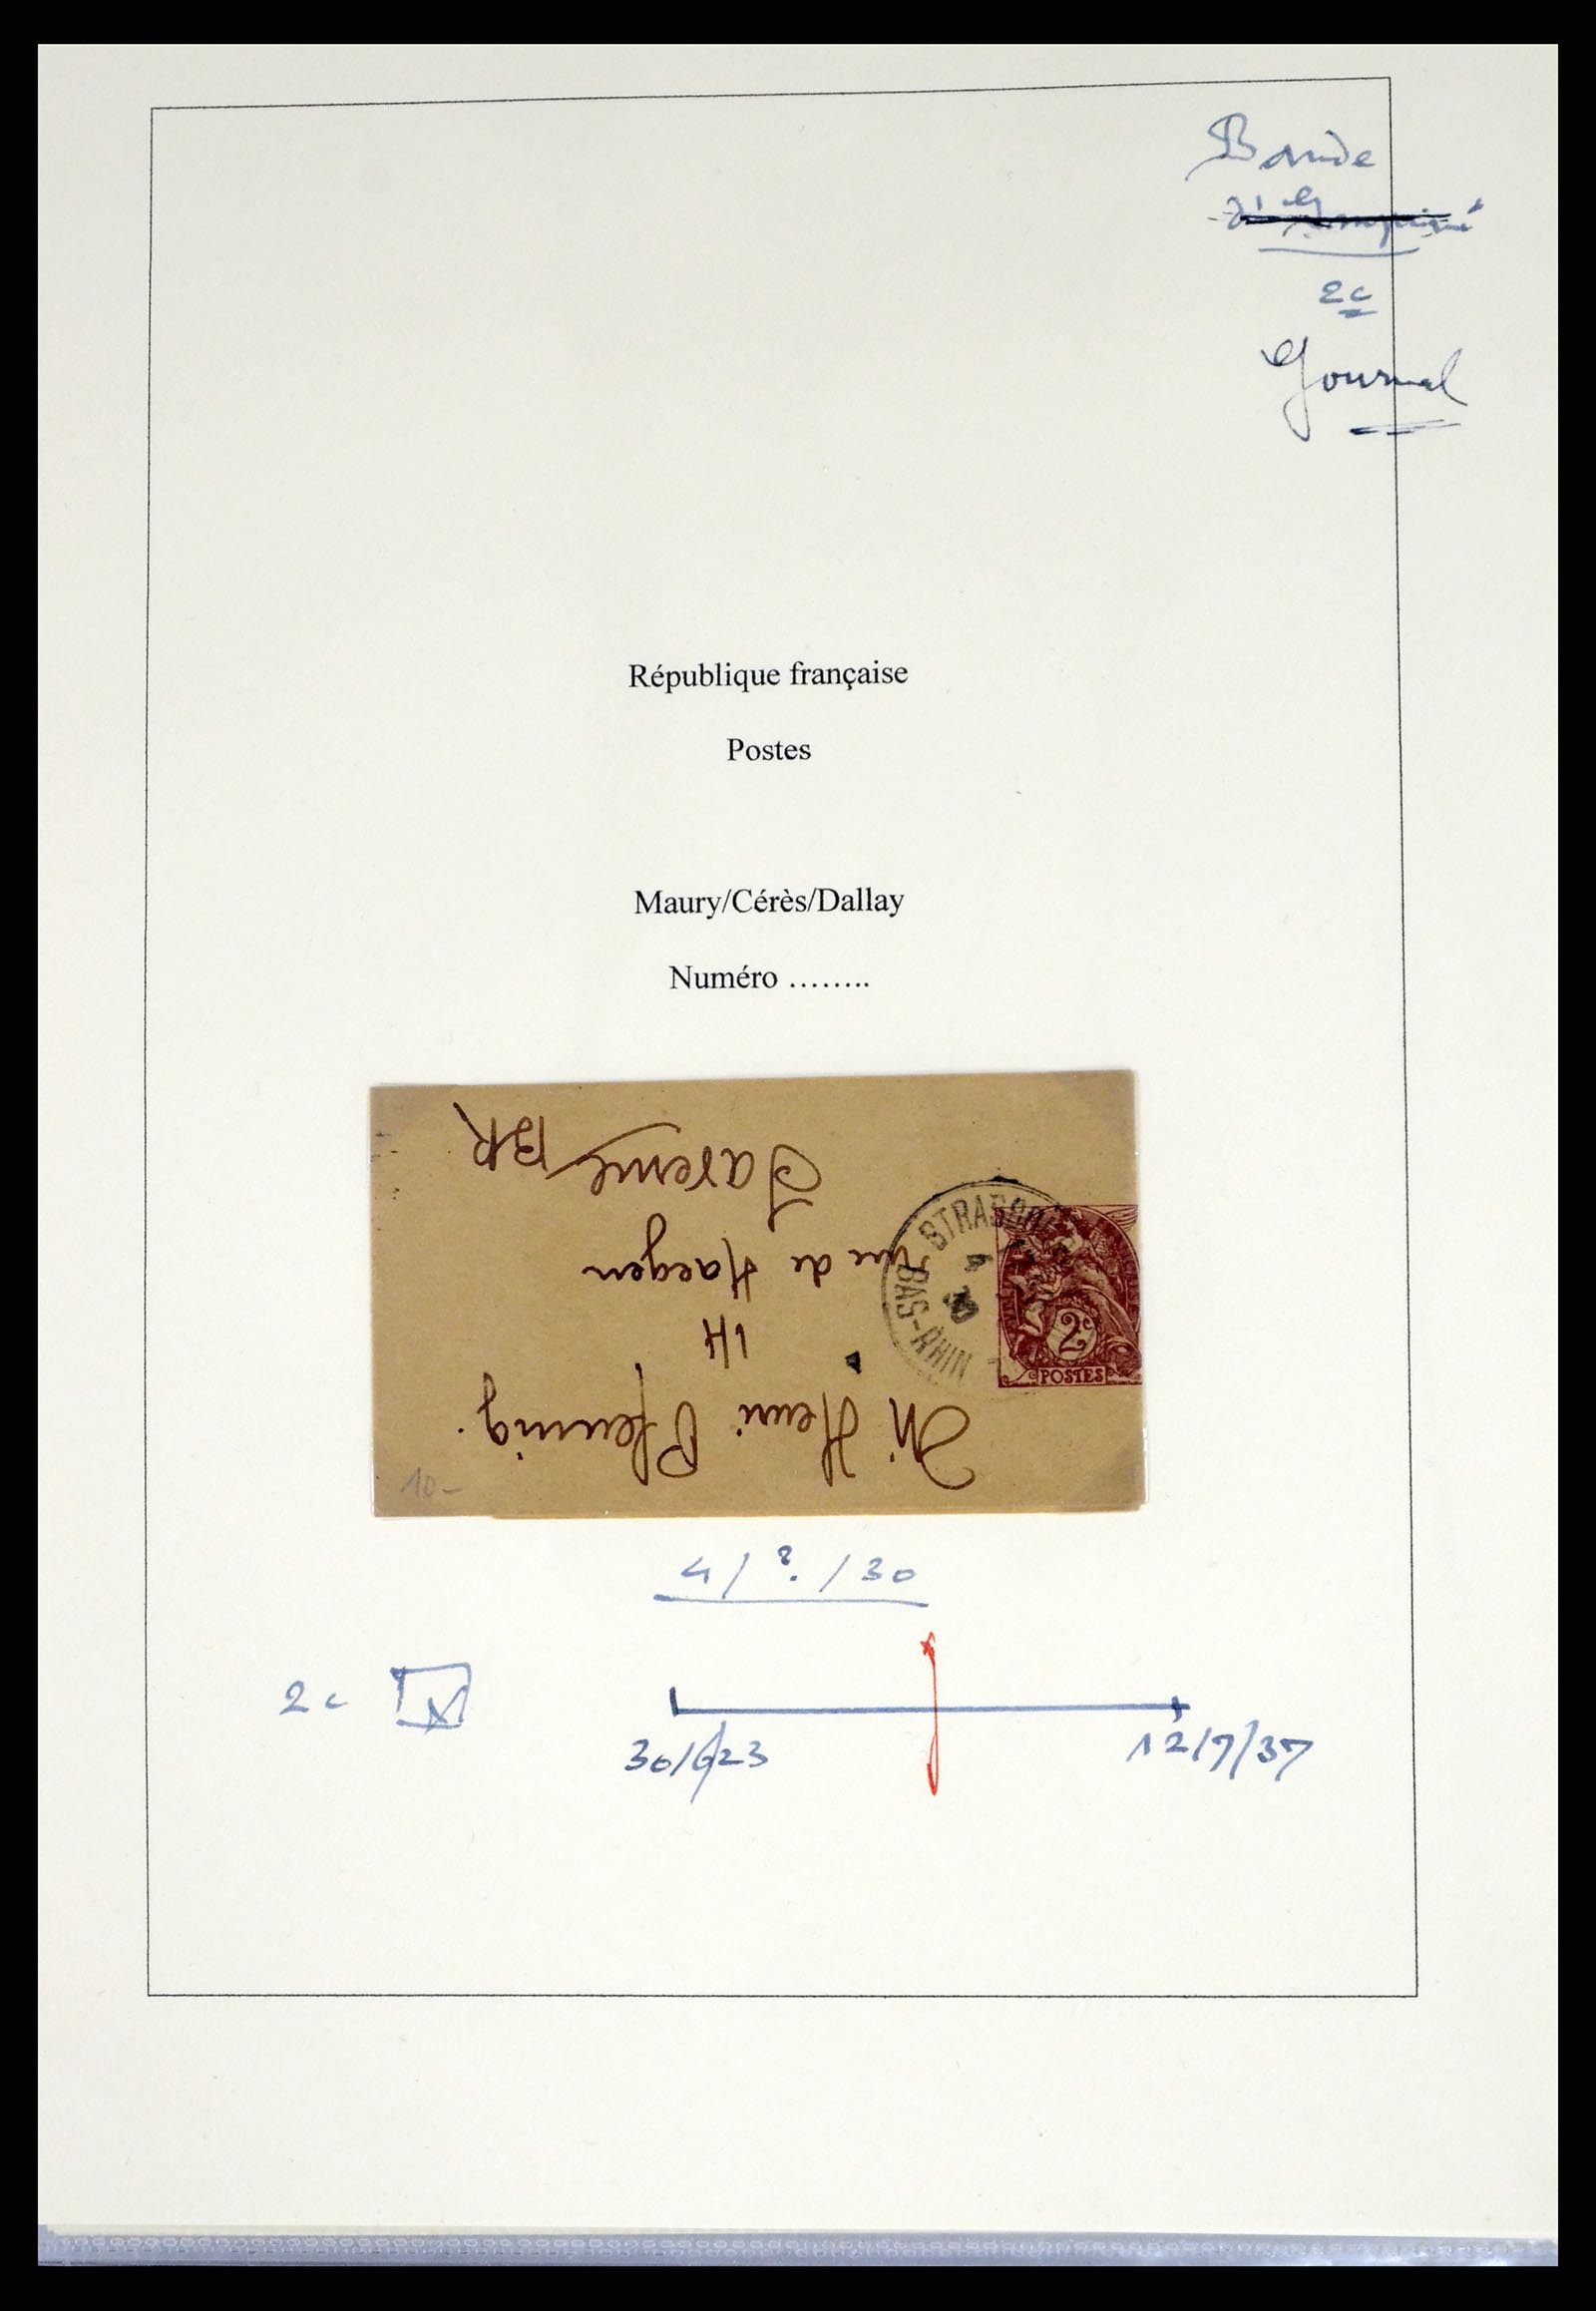 Bande
d'Imprimé
2c
Journal
République française
Postes
Maury/Cérès/Dallay
Numéro ........
Mr Henri Pfennig.
14
rue de Haegen
Saverne BR
STRASBOURG
BAS-RHIN
4
30
2c
POSTES
10-
4/?/30
2c
30/6/23
12/7/37